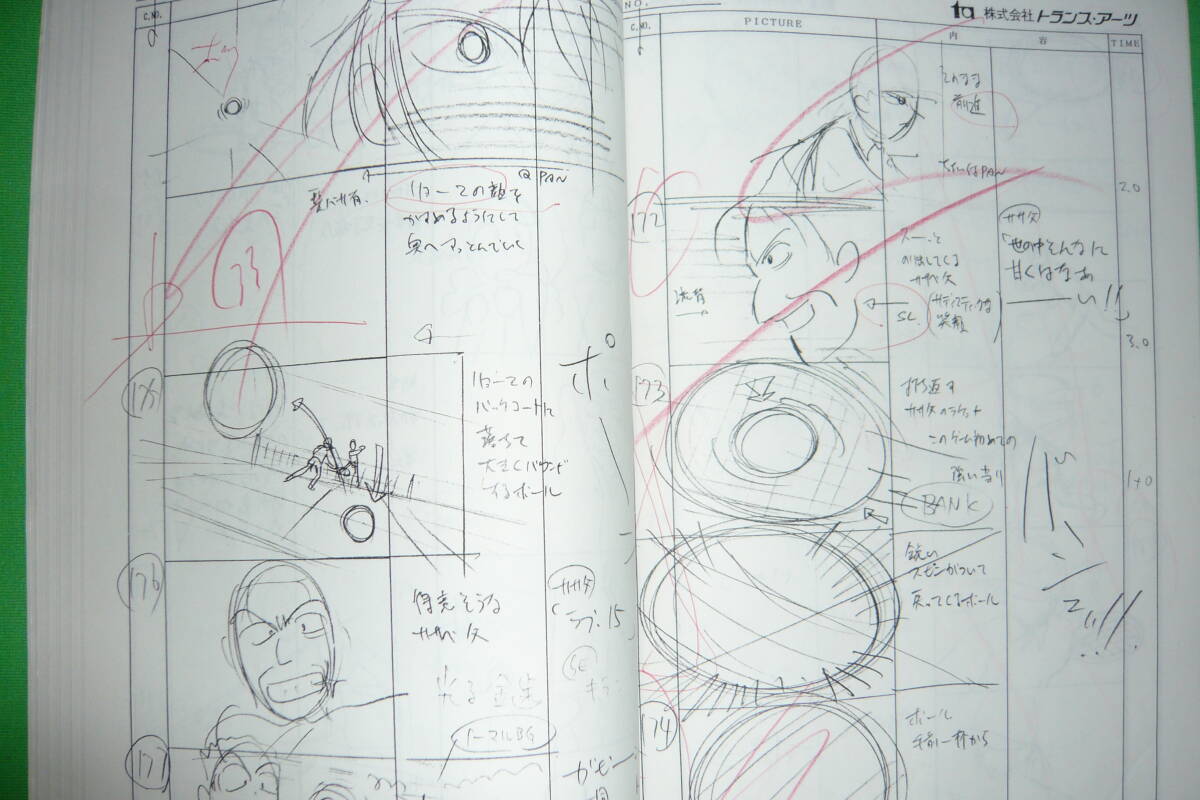 C.NO.
Q PAN
リョーマの顔を
かすめるようにして
奥へすっとんでいく
リョーマの
バックコートに
落ちて
大きくバウンド
するボール
ポーン
170
得意そうな
ササベ父
ササ父
「ラブ・15」
光る金歯
SE
ノーマルBG
171
NO.
株式会社トランス・アーツ
C.NO.
PICTURE
内
容
TIME
そのまま
前進
PAN
2.0
172
スーッと
ササベ父
SL
(サディスティックな
笑顔)
ササ父
「世の中そんなに
甘くはなぁ
ーい!!」
3.0
173
打ち返す
ササ父のラケット
このゲーム初めての
強い当り
BANK
1+0
鋭い
スピンがついて
戻ってくるボール
174
ボール
手前一杯から